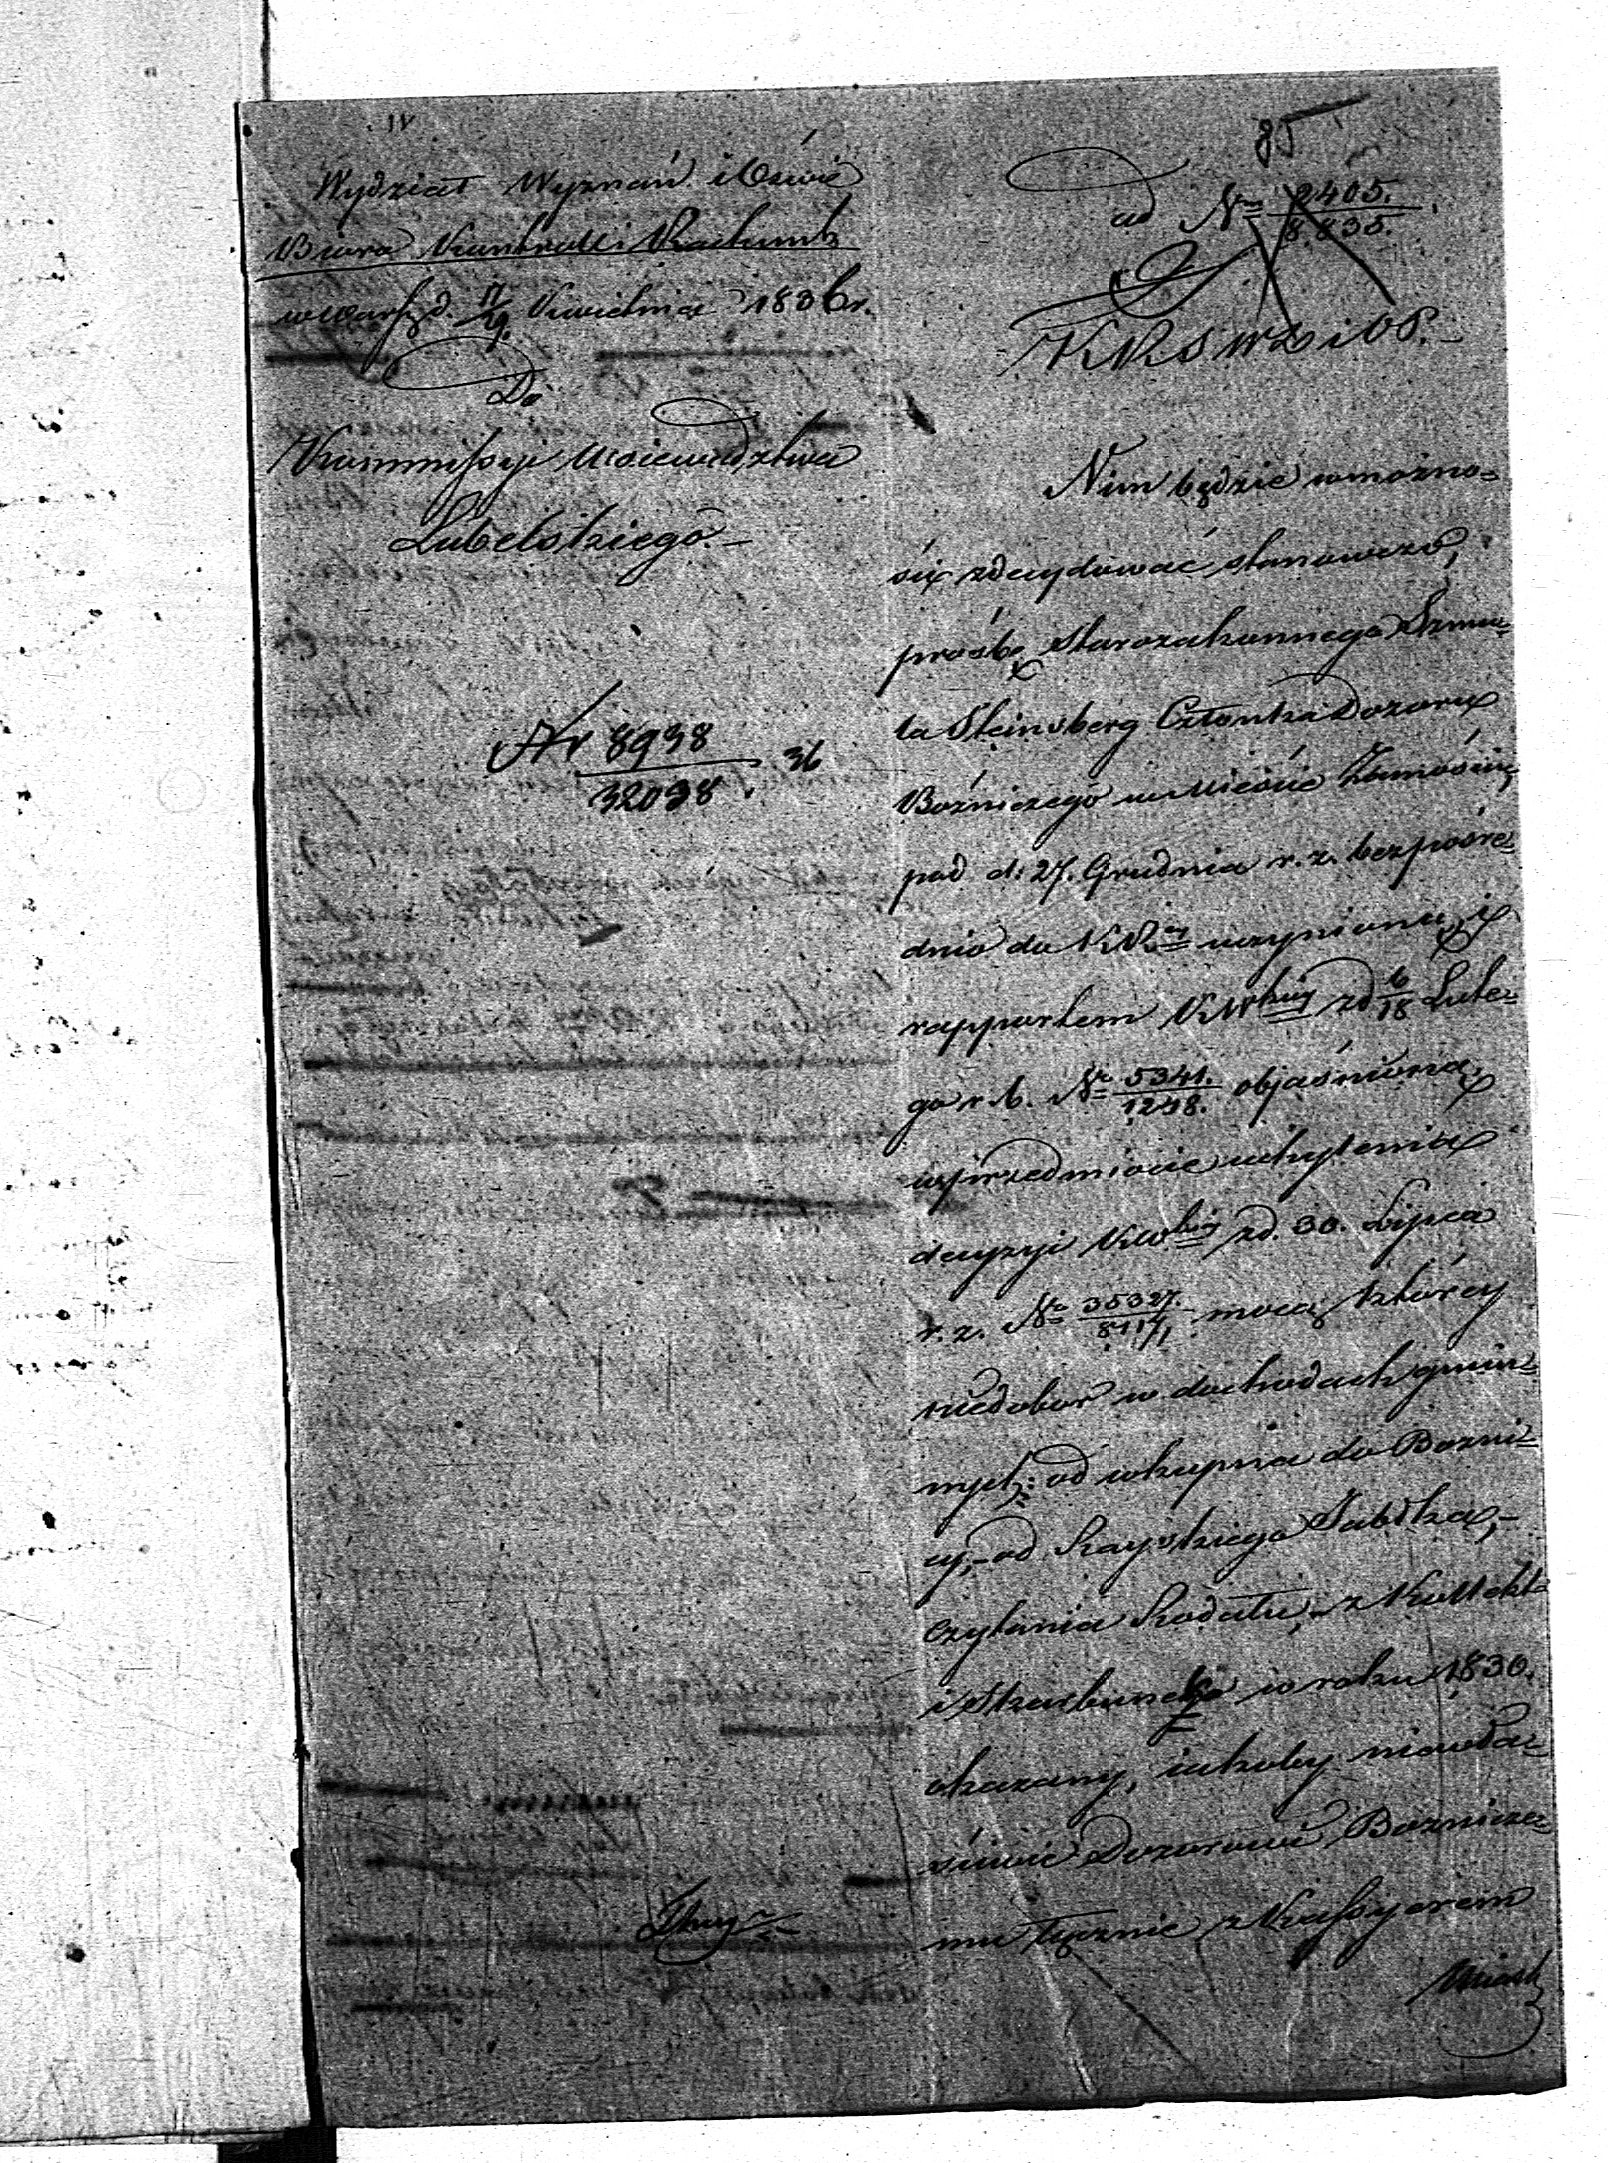 85
Wydział Wyznań i Oświe
Biuro Kontrolli i Rachunk
w Warsz. d. 17/29 Kwietnia 1836 r.
Do
Kommissyi Woiewodztwa
Lubelskiego.-
Nr 8938/32038. 36
ad Nr 2405./8.835.
KRSWD i OP.-
Nim będzie w możno-
ści zdecydować stanowczo,
prośbę Starozakonnego Szmu-
la Steinsberg Członka Dozoru
Bożniczego w Mieście Zamościu,
pod d: 27. Grudnia r. z. bezpośre-
dnio do KR uczynioną, i
rapportem KW z d 6/18 Lute-
go r. b. Nr 5341./1248. objaśnioną,
w przedmiocie uchylenia
decyzyi KW z d. 30. Lipca
r. z. Nr 35327./8117 mocą którey
niedobor w dochodach gmin-
nych: od wkupna do Bożni-
cy,- od Rayskiego Jabłka,-
czytania Rodału,- z Kollekt
i Skarbonek w roku 1830.
okazany, iakoby niewła-
ściwie Dozorowi Bożnicze-
mu łącznie z Kassyerem
Miast